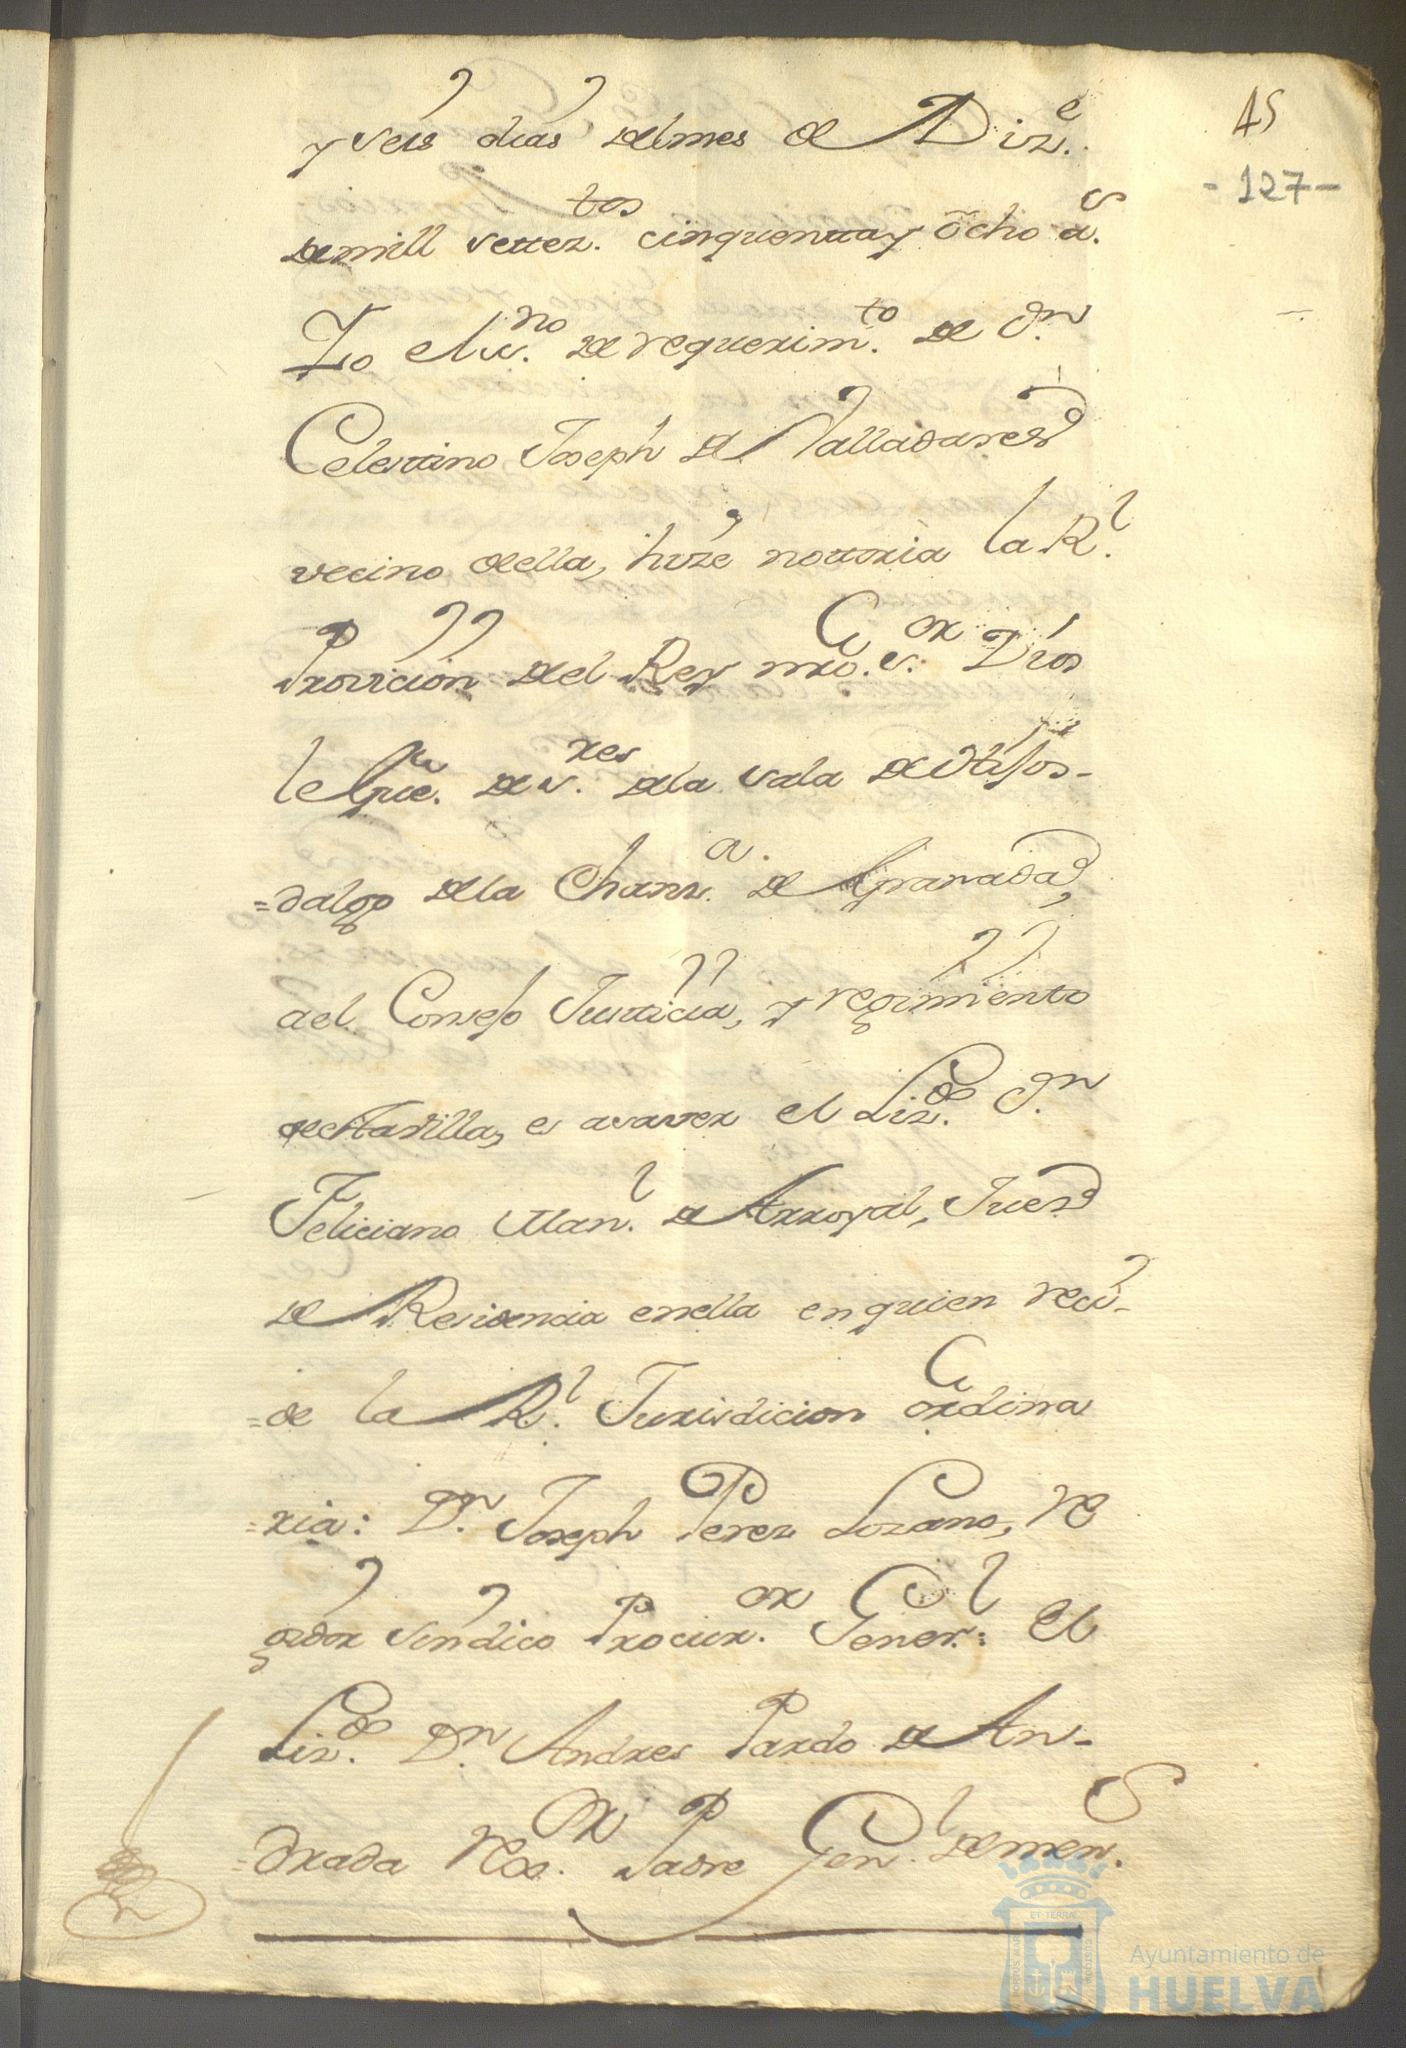 45
- 127 -
y seis dias del mes de Diz.e
de mill settez.tos cinquentta y ôcho a.s
Yo el ss.no de requerim.to de d.n
Celesttino Joseph de Valladares
vecino de ella, hize nottoria la R.l
Provicion del Rey nro. s.or Dios
le gue. de s.res de la sala de Hijos-
=dalgo de la Chanz.a de Granada,
ael Consejo Justticia, y regimiento
de esta villa, es a saver el Liz.do d.n
Feliciano Man.l de Arroyal, Jues
de Residencia en ella en quien reci-
=de la R.l Jurisdicion ordina
=ria: D.n Joseph Perez Lozano, re
gidor sindico Procur.or Gener.l: el
Liz.do D.n Andres Pardo de An-
=drada re.or Padre Gen.l de men.s
ET TERRAE
Ayuntamiento de
HUELVA